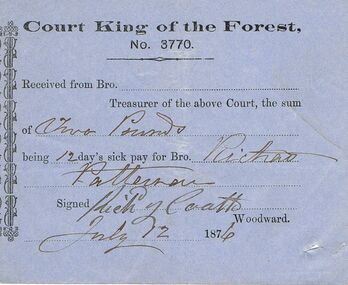 Court King of the Forest,
No. 3770.
Received from Bro.
Treasurer of the above Court, the sum
of Two Pounds
being 12 day's sick pay for Bro. Richard
Patterson
Signed
Woodward.
July 12 1876